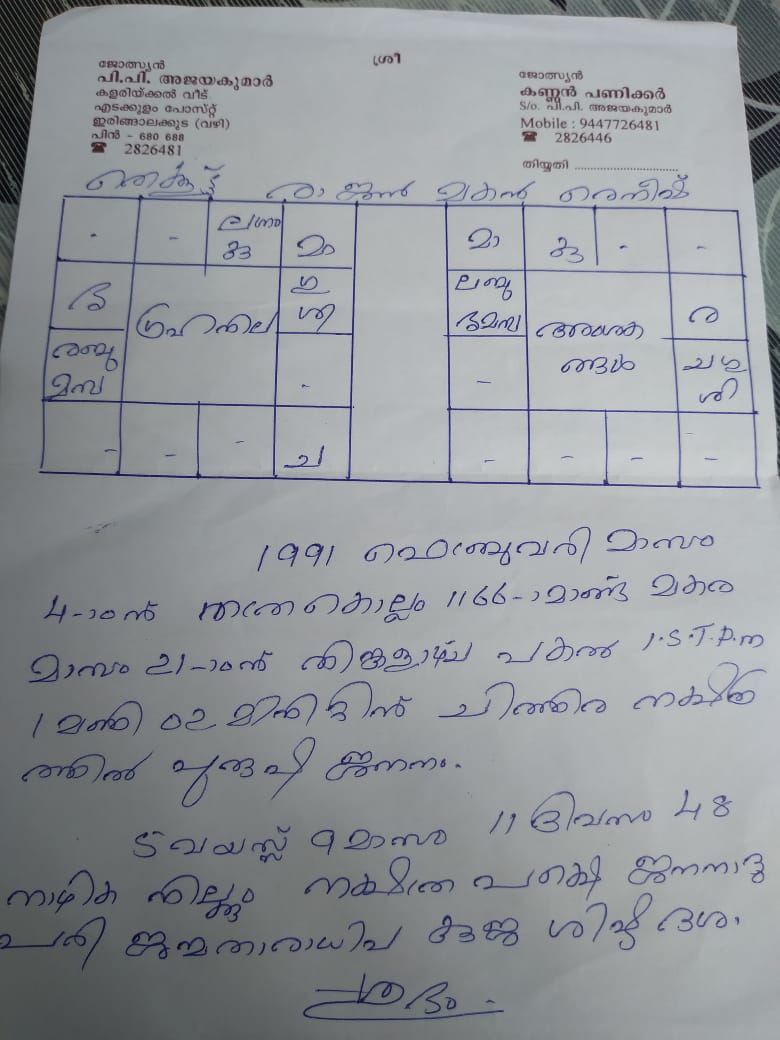 ശ്രീ
ജോത്സ്യൻ
പി.പി. അജയകുമാർ
കളരിയ്ക്കൽ വീട്
എടക്കുളം പോസ്റ്റ്
ഇരിങ്ങാലക്കുട (വഴി)
പിൻ - 680 688
☎ 2826481
ജോത്സ്യൻ
കണ്ണൻ പണിക്കർ
S/o. പി.പി. അജയകുമാർ
Mobile : 9447726481
☎ 2826446
തിയ്യതി ............................
രാജൻ മകൻ രെനീഷ്
. - ലഗ്നം കു മാ
ശു ഗ്രഹനില ഗു ശി
രബു മസ .
- - - ച
മാ കു - -
ലബു ശുമസ അംശക ര
- ങ്ങൾ ചഗു ശി
- - - -
1991 ഫെബ്രുവരി മാസം
4-ാംന് കൊല്ലം 1166-ാമാണ്ട് മകര
മാസം 21-ാംന് തിങ്കളാഴ്ച പകൽ I.S.T.P.m
1 മണി 02 മിനിട്ടിന് ചിത്തിര നക്ഷത്ര
ത്തിൽ പുരുഷ ജനനം.
5 വയസ്സ് 9 മാസം 11 ദിവസം 48
നാഴിക നില്ക്കും നക്ഷത്ര ജനനാദൂ
പരി ജന്മതാരാധിപ കുജ ശിഷ്ട ദശ.
ശുഭം.